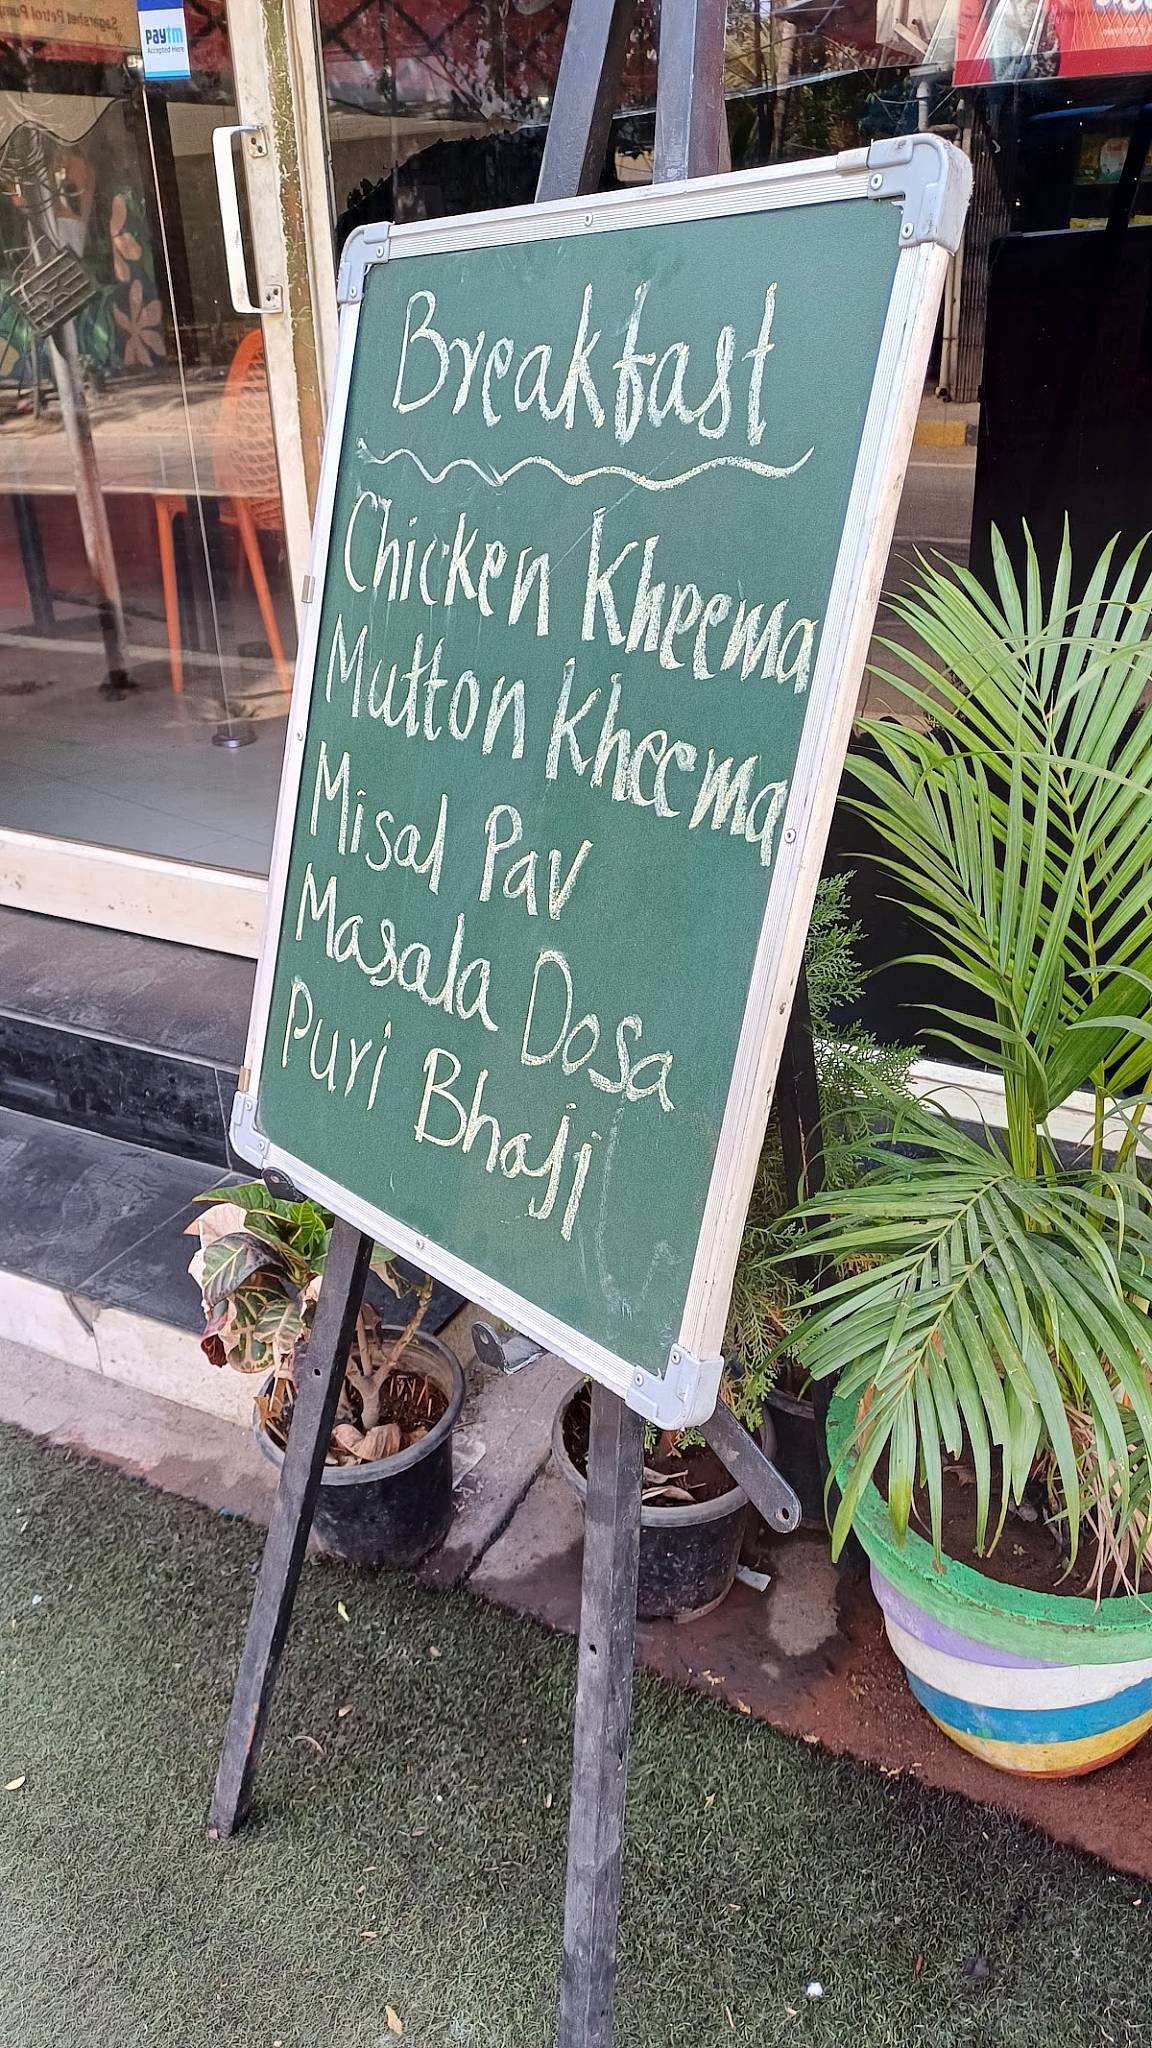 paytm
Accepted Here
Sagarshet Petrol Pump
Breakfast
Chicken Kheema
Mutton Kheema
Misal Pav
Masala Dosa
Puri Bhaji